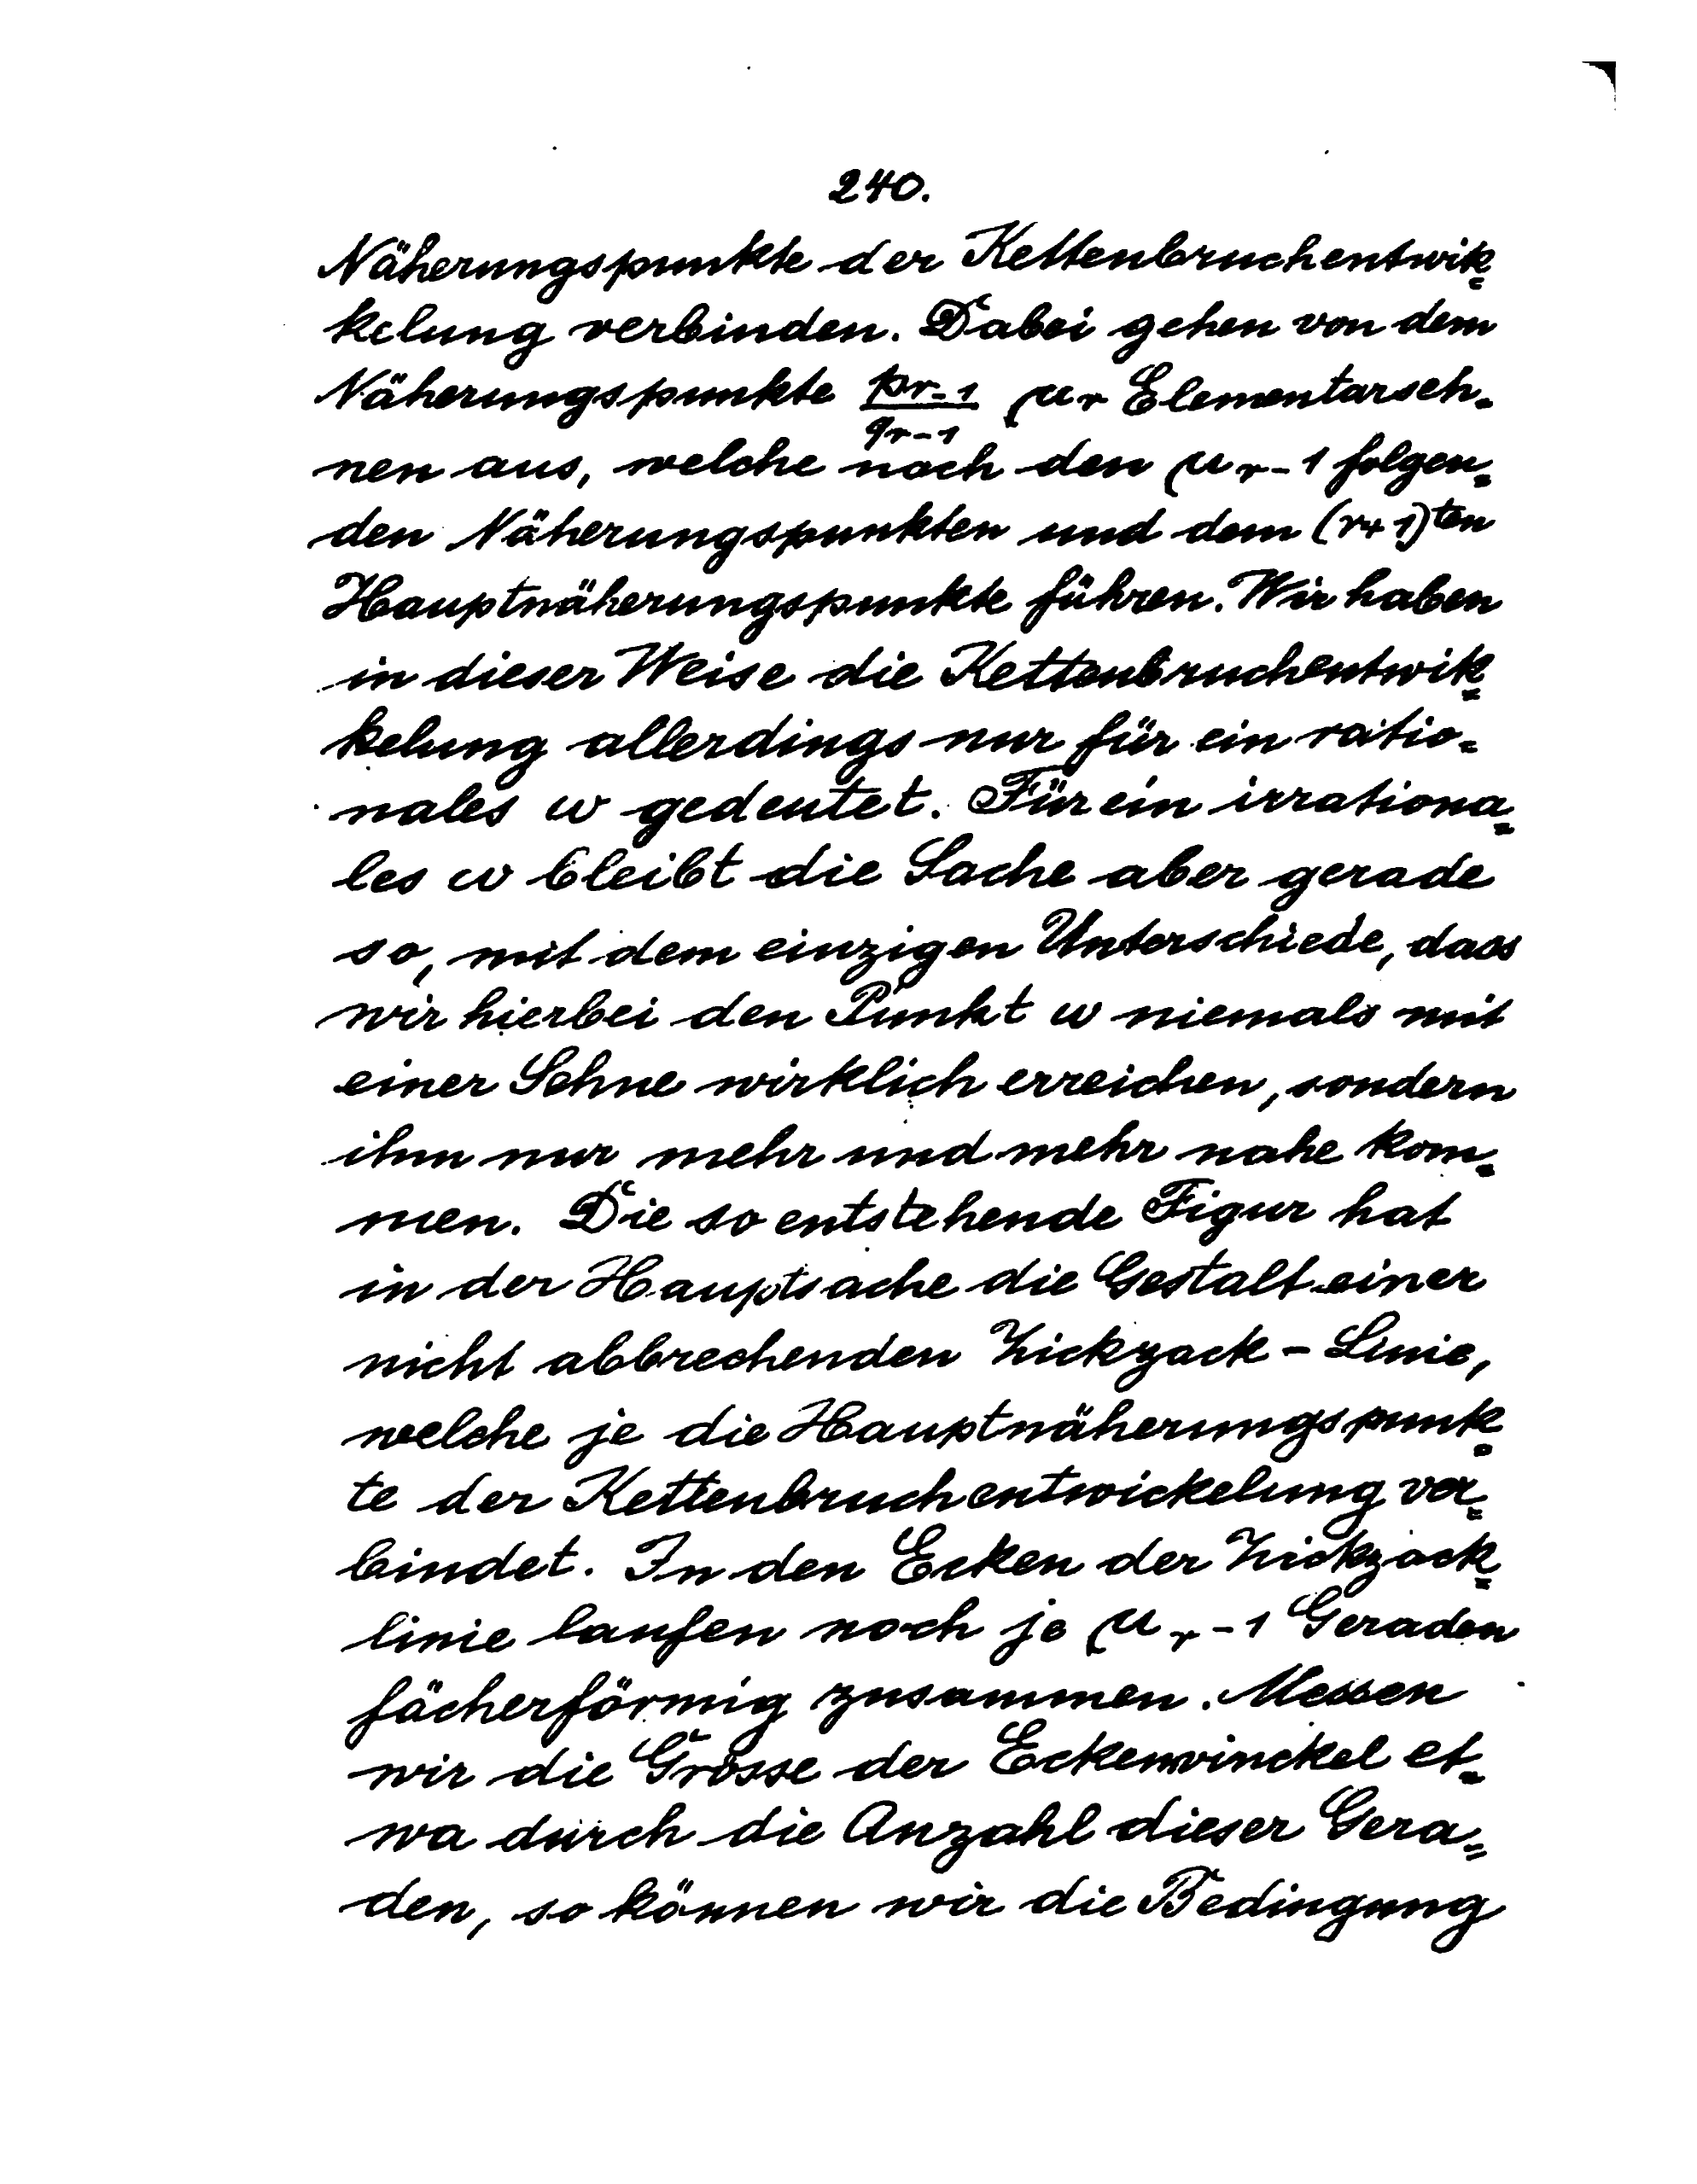 240.
Näherungspunkte der Kettenbruchentwik=
kelung verbinden. Dabei gehen von dem
Näherungspunkte \frac{p_{r-1}}{q_{r-1}} μ_r Elementarseh=
nen aus, welche nach den μ_r - 1 folgen=
den Näherungspunkten und dem (r+1)^{ten}
Hauptnäherungspunkte führen. Wir haben
in dieser Weise die Kettenbruchentwik=
kelung allerdings nur für ein ratio=
nales ω gedeutet. Für ein irrationa=
les ω bleibt die Sache aber gerade
so, mit dem einzigen Unterschiede, dass
wir hierbei den Punkt ω niemals mit
einer Sehne wirklich erreichen, sondern
ihm nur mehr und mehr nahe kom=
men. Die so entstehende Figur hat
in der Hauptsache die Gestalt einer
nicht abbrechenden Zickzack - Linie,
welche je die Hauptnäherungspunk=
te der Kettenbruchentwickelung ver=
bindet. In den Ecken der Zickzack=
linie laufen noch je μ_r - 1 Geraden
fächerförmig zusammen. Messen
wir die Grösse der Eckenwinckel et=
wa durch die Anzahl dieser Gera=
den, so können wir die Bedingung